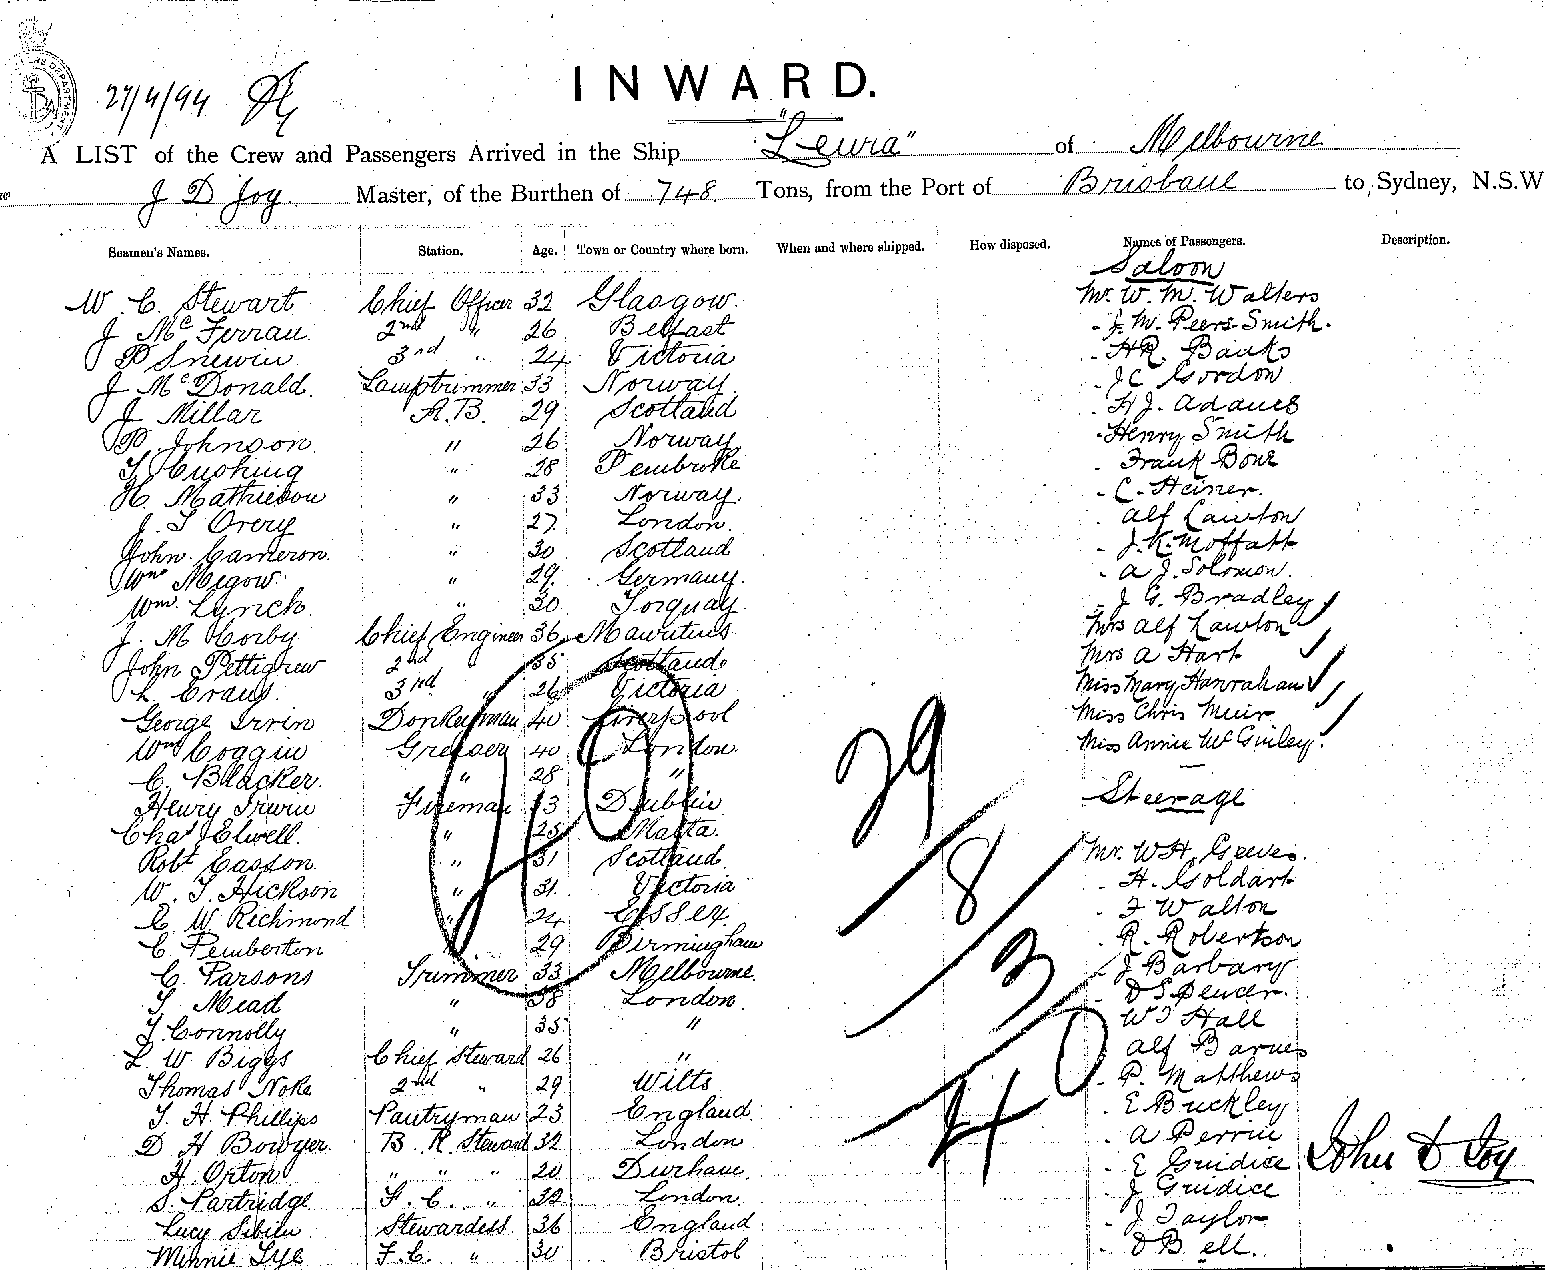 INWARD.
27/4/94
A LIST of the Crew and Passengers Arrived in the Ship "Leura" of Melbourne
J D Joy Master, of the Burthen of 748 Tons, from the Port of Brisbane to Sydney, N.S.W
Seamen's Names. Station. Age. Town or Country where born. When and where shipped. How disposed. Names of Passengers. Description.
Saloon
W. C. Stewart Chief Officer 32 Glasgow. Mr. W. M. Walters
J McFerran 2nd " 26 Belfast - J. M. Peers-Smith.
P Snewin 3rd " 24 Victoria - H R. Banks
J McDonald. Lamptrimmer 33 Norway. - J C Gordon
J Millar A.B. 29 Scotland - H J. Adames
P Johnson " 26 Norway - Henry Smith
T Cushing " 28 Pembroke - Frank Bone
H. Mathieson " 33 Norway. - C. Heiner.
J. T Overy " 27 London. Alf Lawton
John Cameron " 30 Scotland - J. K. Moffatt
Wm Megow " 29. Germany. - A J. Solomon.
Wm. Lynch " 30 Torquay - J G. Bradley
J. M Corby Chief Engineer 36 Mauritius Mrs Alf Lawton
John Pettigrew 2nd 35 Scotland. Mrs A Hart
L. Evans. 3rd " 26 Victoria Miss Mary Hanrahan
George Irvin Donkeyman 40 Liverpool Miss Chris Muir
Wm Coggin Greaser 40 London Miss Annie McGinley.
C. Blacker. " 28 "
Henry Irwin Fireman 43 Dublin Steerage
Chas Elwell. " 25 Malta.
Robt Easson " 31 Scotland. Mr. W H Greeves.
W. T. Hickson " 31. Victoria - H. Goldart
C W Richmond " 24 Essex. - F Walton
C Pemberton 29 Birmingham - R. Robertson
C. Parsons Trimmer 33 Melbourne. - J Barbary
T Mead " 38 London. - D Spencer.
T. Connolly " 35 " W J Hall
L W Biggs Chief Steward 26 " Alf Barnes
Thomas Noke 2nd " 29 Wilts - P. Matthews
T. H Phillips Pantryman 23 England. - E Buckley
D H Bowyer B. R. Steward 32 London - A Perrin
H Orton " " " 20 Durham. - E Guidice
S. Partridge F. C. " 32 London. J Guidice
Lucy Sibien Stewardess 36 England - J Taylor
Minnie Lye F. C. " 30 Bristol - D Bell.
40
29
8
3
40
John D Joy